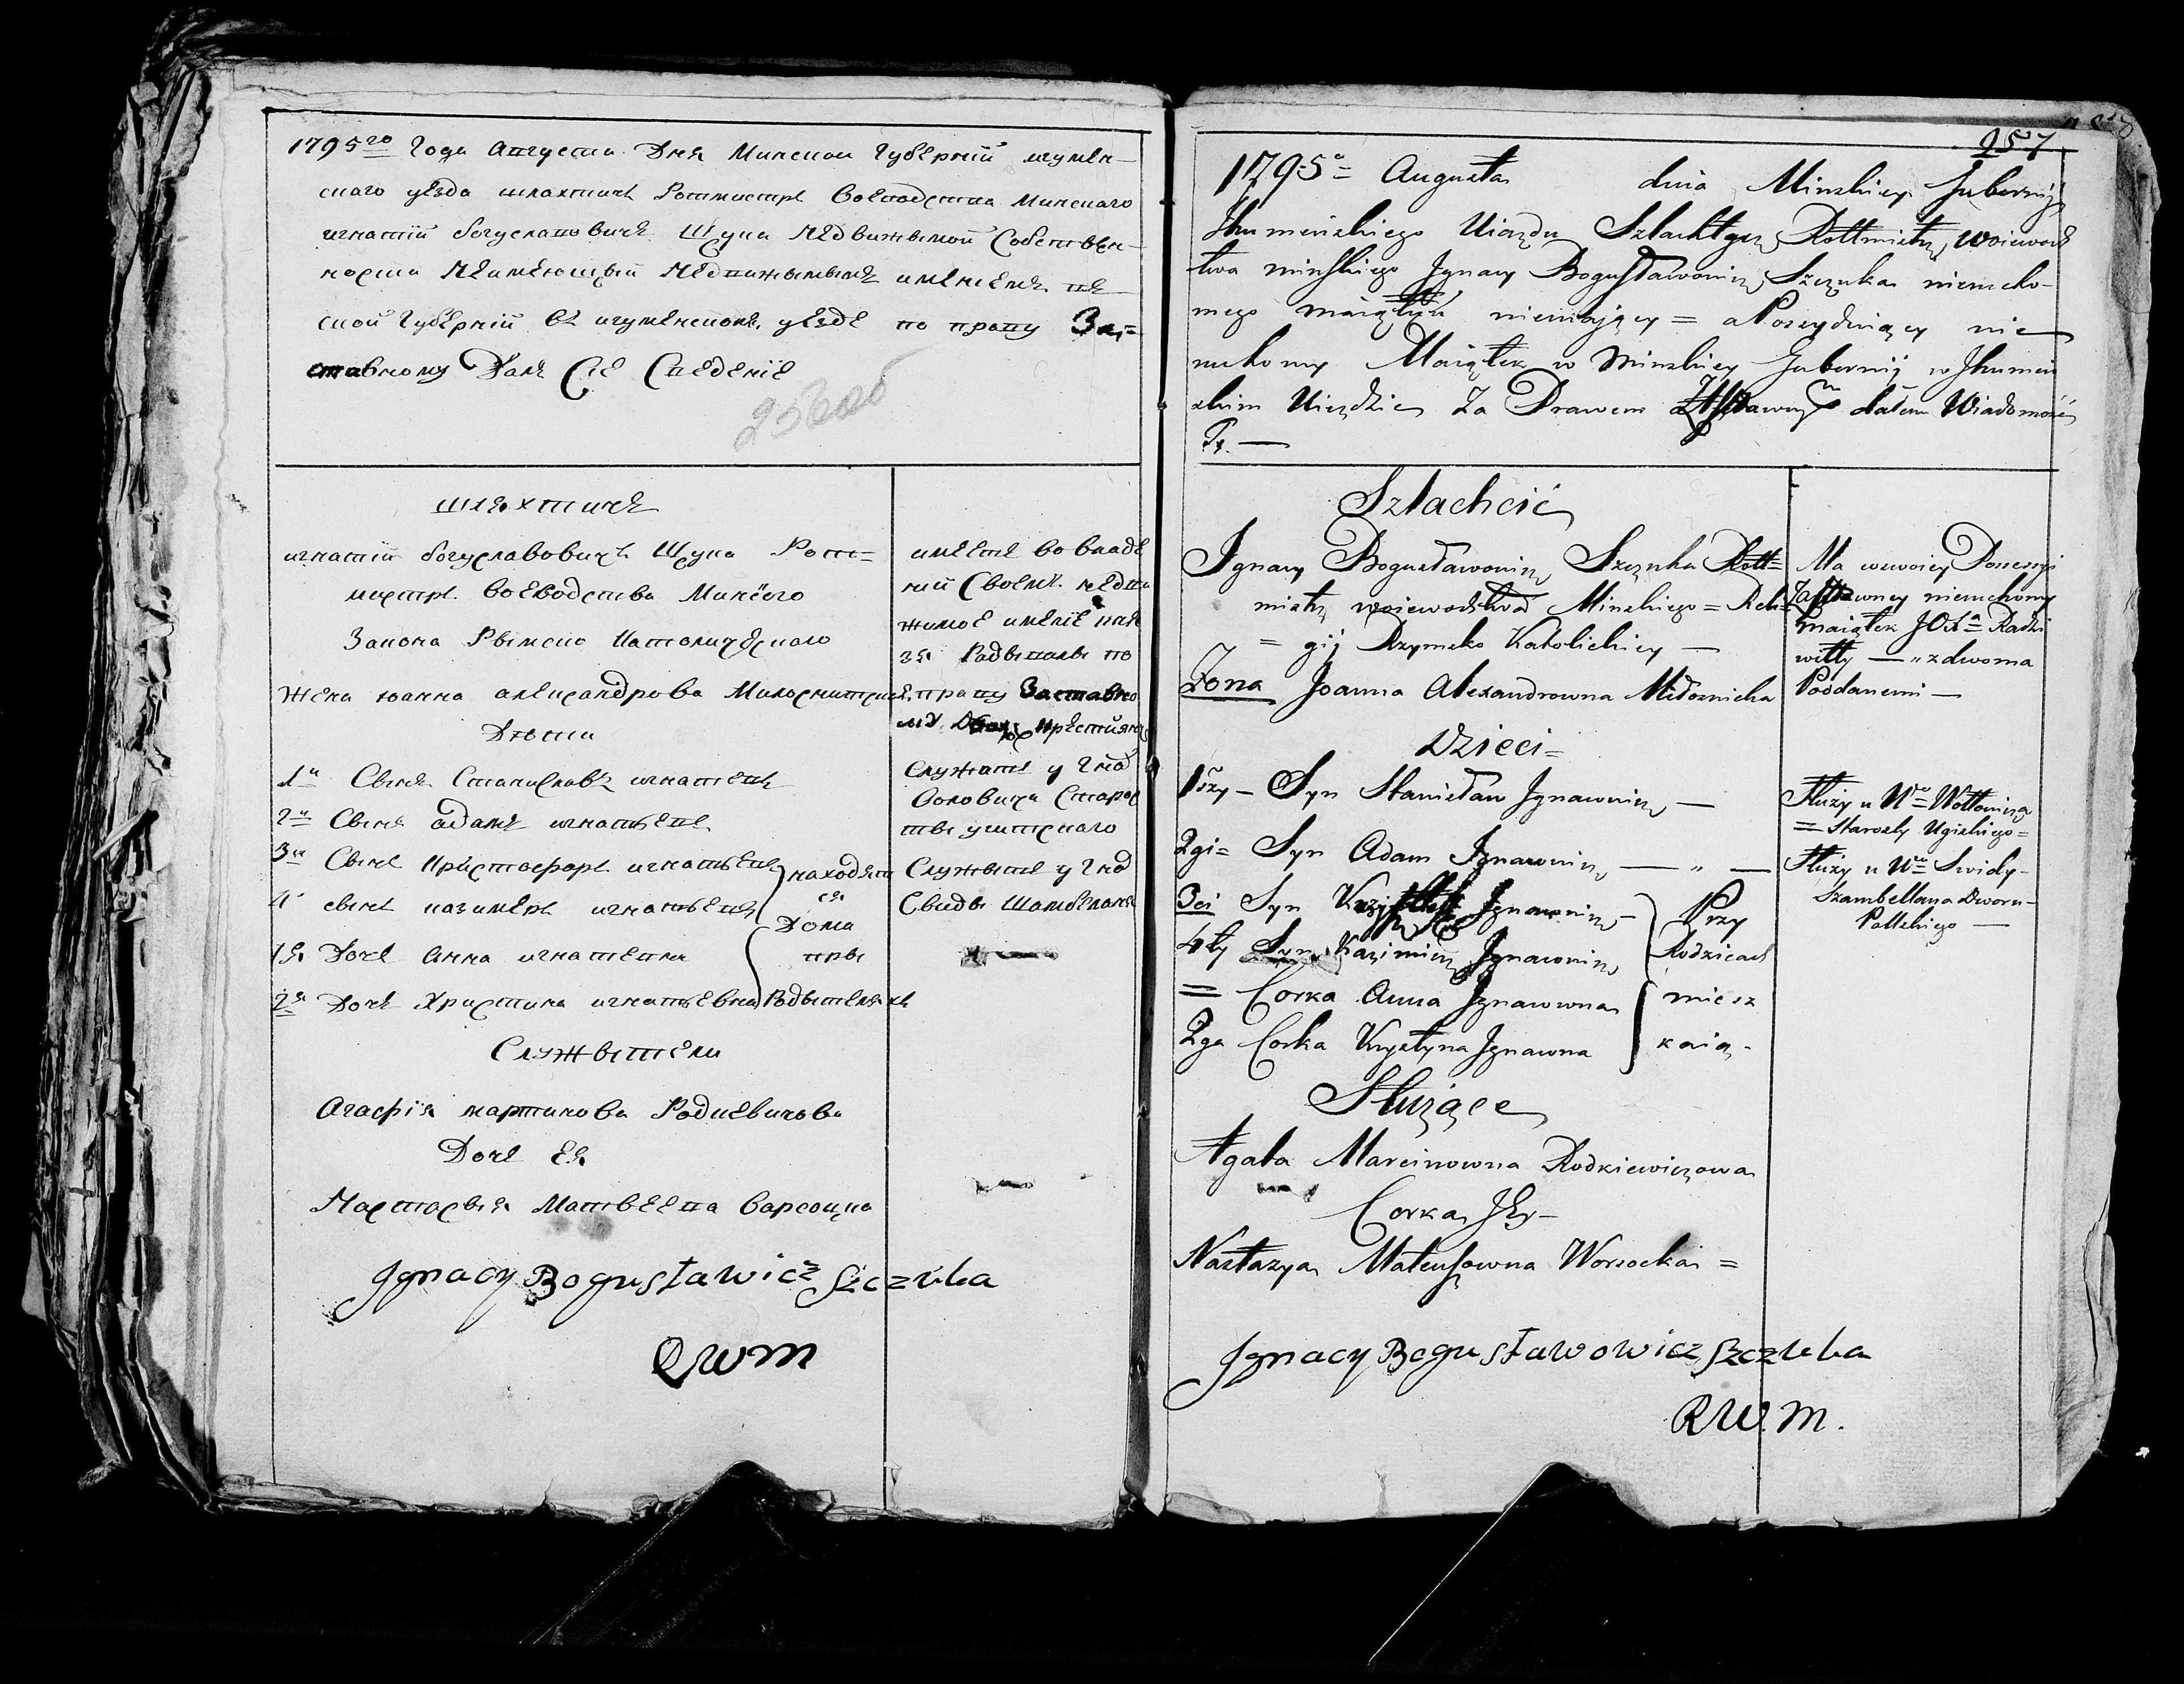 1795го Года Августа Дня Минской Губерній игумен-
скаго уезда шляхтичъ Ротмистръ Воеводства Минскаго
игнатій богуславовичъ Щука недвижимой собствен-
ности неимеющый недвижымымъ имениемъ
ской Губерній въ игуменскомъ уезде по праву За-
ставному Далъ Сіе Сведеніе
шляхтичъ
игнатій богуславовичъ Щука Рот=
мистръ воеводства Минскаго
Закона Рымско Католическаго
Жена юанна александрова
Дѣти
1й Сынъ Станиславъ игнатевъ
2й Сынъ адамъ игнатьевъ
3й Сынъ Кристофоръ игнатьевъ
4 сынъ казимеръ игнатьевъ
находят
ся
Дома
1я Дочъ Анна игнатевна
при
2я Дочъ Христина игнатьевна Родытеляхъ
Служытели
Агафія мартинова Родкевичова
Дочъ Ея
Настасья Матвеева Варсоцка
имеетъ во владе
ніи Своемъ недви
жимое именіе кня
зя Радзивила по
праву Заставно
му крестьяны
Служитъ у Гнд
Воловича Старос
ты
Служытъ у Гнд
Свиды Шамбеляна
Ignacy Bogusławicz Szczuka
RWM
257
1795o= Augusta dnia Minskiey Gubernij
Ihumeńskiego Uiazdu Szlachtycz Rottmistrz Woiewodz
twa minskiego Ignacy Bogusławowicz Szczuka nierucho-
mego maiątku niemaiący = a Posyduiący nie
ruchomy Maiątek w Minskiey Gubernij w Ihumeń
skim Uieździe Za Prawem Zastawnym dałem Wiadomość
Tę. —
Szlachcic
Ignacy Bogusławowicz Szczuka Rott=
mistrz woiewodztwa Minskiego = Reli=
= gij Rzymsko Katolickiey —
Żona Joanna Alexandrowna Miłosnicka
Dzieci=
1szy — Syn Stanisław Ignawicz —
2gi= Syn Adam Ignawicz — " —
3ci Syn Ignawicz —
4ty Syn Kazimierz Ignawicz
= Corka Anna Ignawna
2ga Corka Krystyna Ignawna
Przy
Rodzicach
miesz
kaią -
Służące
Agata Marcinowna Rodkiewiczowa
Corka Iey —
Nastazya Mateuszowna Worsocka =
Ma w swoiey Possessyi
Zastawney nieruchomy
maiątek JOXa Radzi
wiłły — " z dwoma
Poddanemi —
Służy u Wo= Wołłowicza
= Starosty =
Służy u Wo= Swidy -
Szambellana Dworu -
Polskiego —
Ignacy Bogusławowicz Szczuka
RW.M.